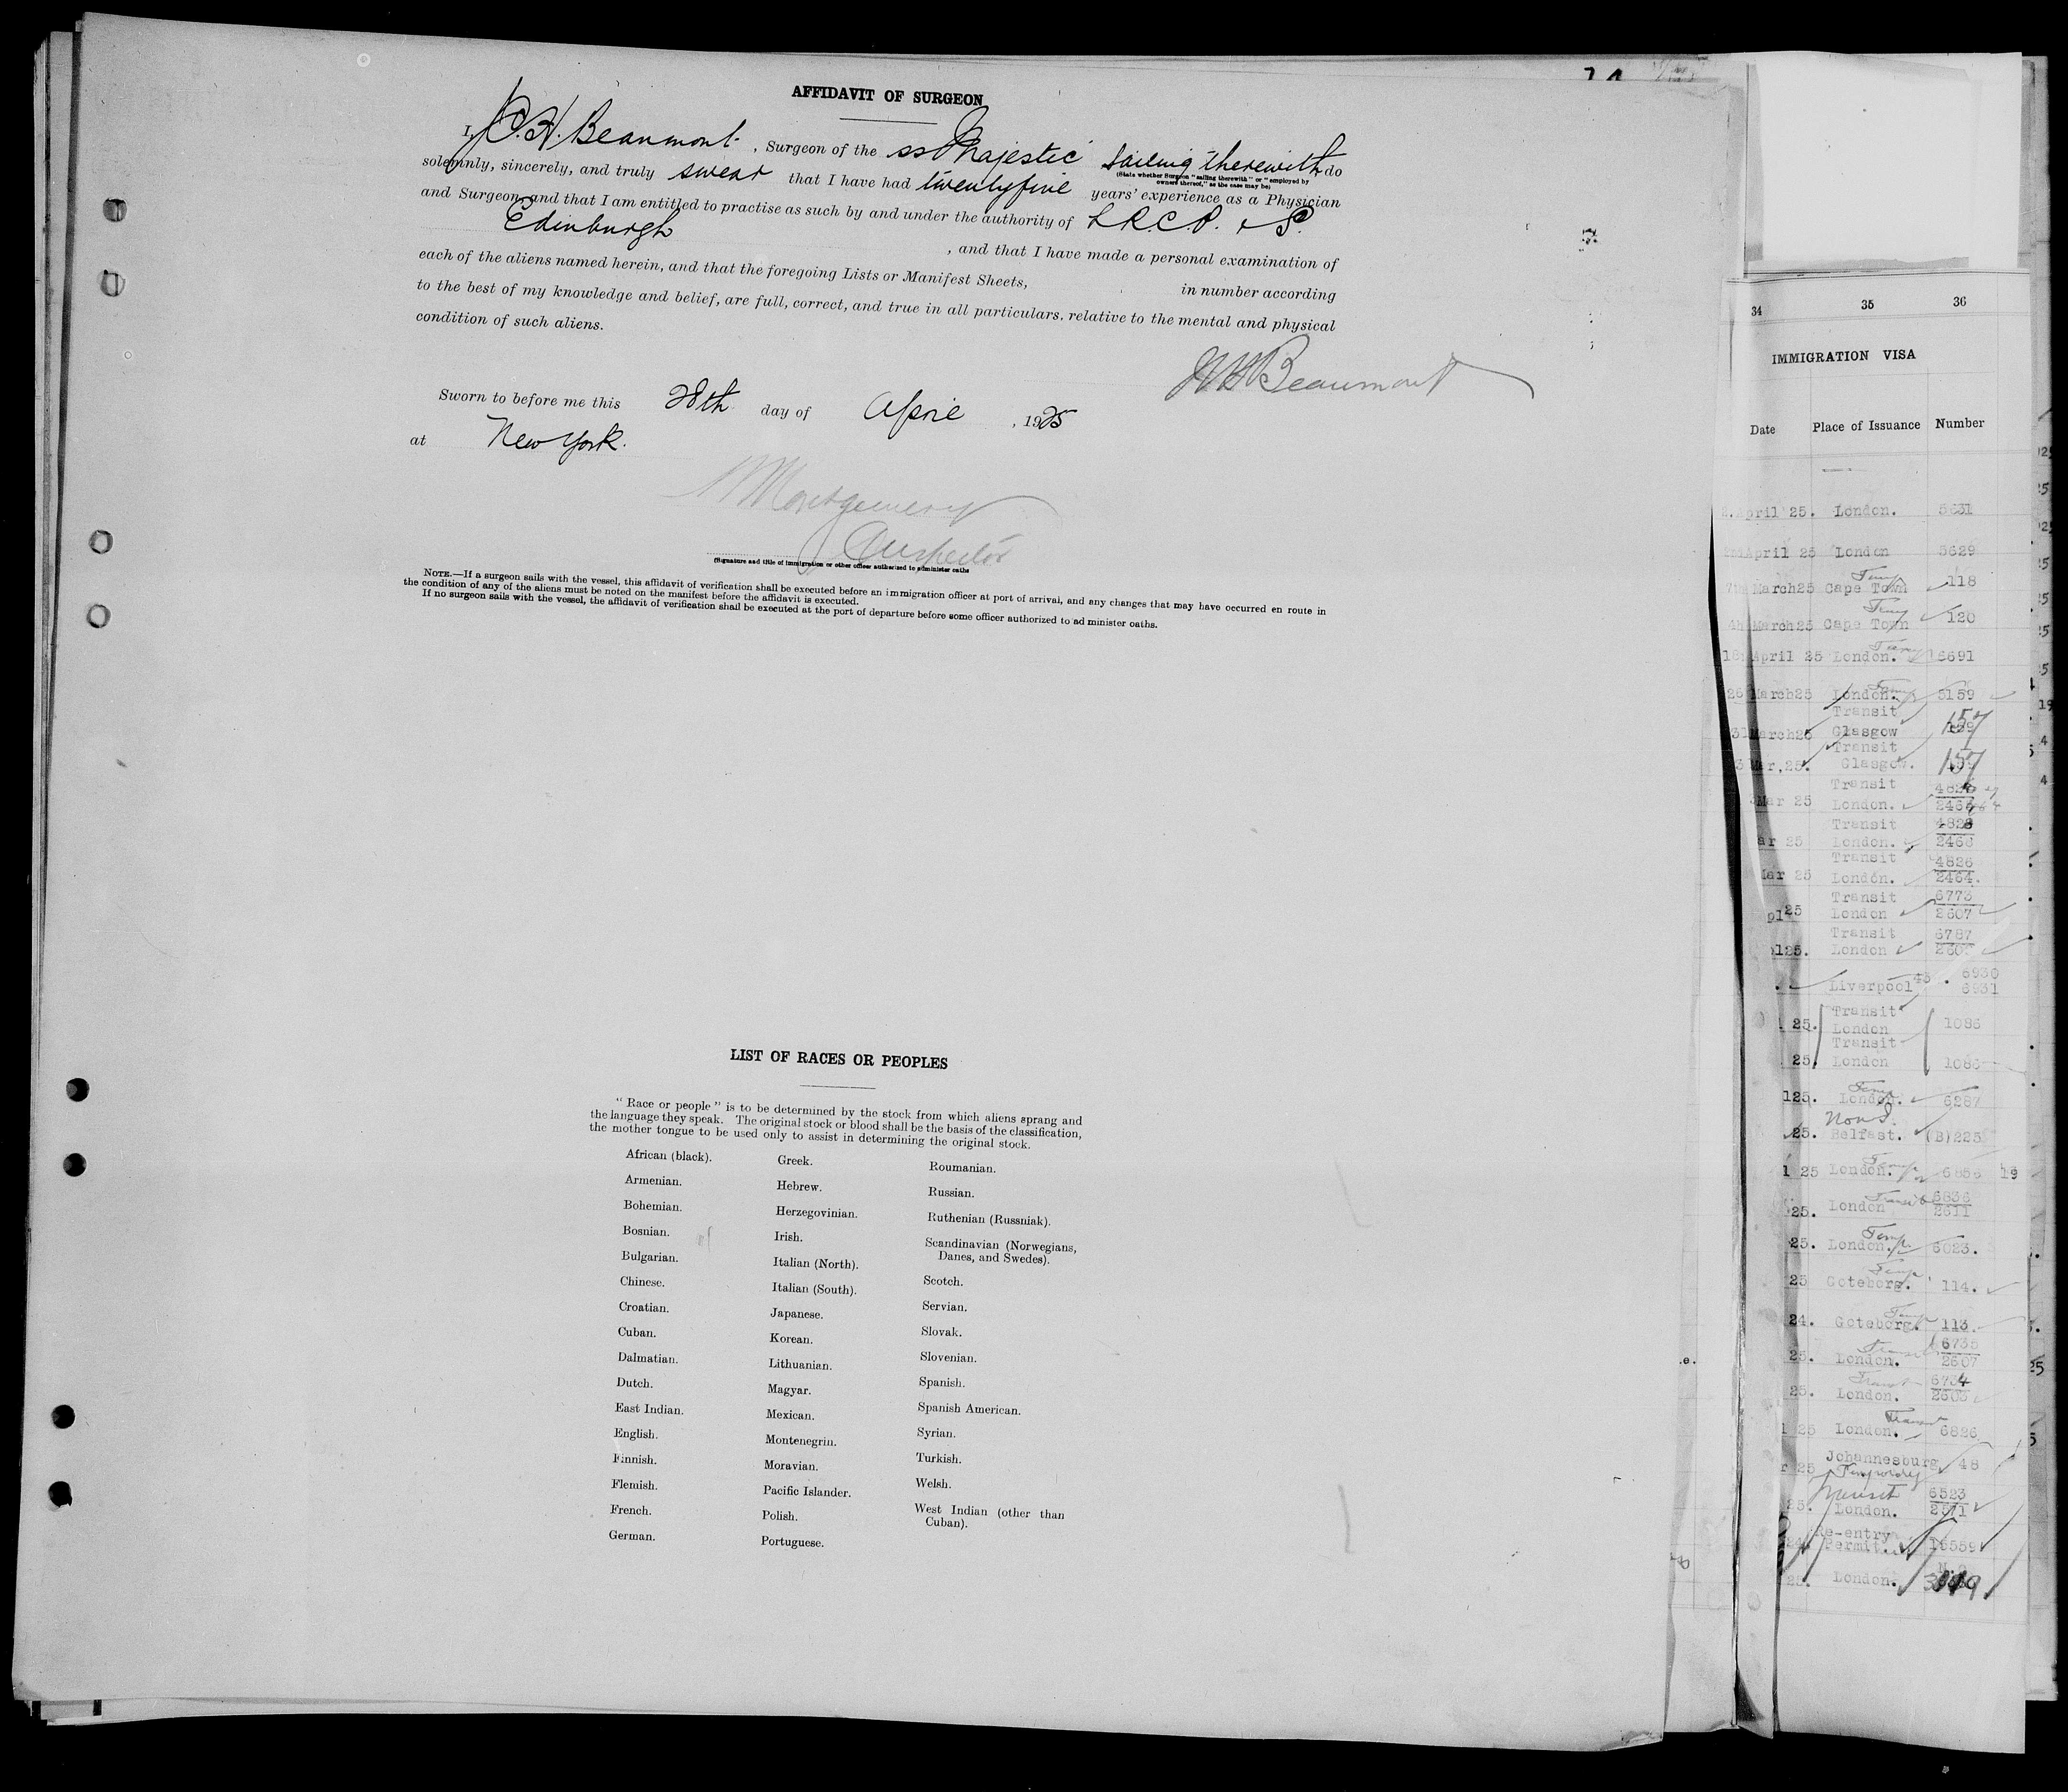 AFFIDAVIT OF SURGEON
I, J.C.H. Beaumont , Surgeon of the ss Majestic sailing therewith do
(State whether Surgeon "sailing therewith" or "employed by
owners thereof," as the case may be)
solemnly, sincerely, and truly swear that I have had twentyfive years' experience as a Physician
and Surgeon and that I am entitled to practise as such by and under the authority of LRCP. & S.
Edinburgh , and that I have made a personal examination of
each of the aliens named herein, and that the foregoing Lists or Manifest Sheets, in number according
to the best of my knowledge and belief, are full, correct, and true in all particulars. relative to the mental and physical
condition of such aliens.
Beaumont
Sworn to before me this 28th day of April , 1925
at New York.
Montgomery
Inspector
(Signature and title of immigration or other officer authorized to administer oaths
NOTE.—If a surgeon sails with the vessel, this affidavit of verification shall be executed before an immigration officer at port of arrival, and any changes that may have occurred en route in
the condition of any of the aliens must be noted on the manifest before the affidavit is executed.
If no surgeon sails with the vessel, the affidavit of verification shall be executed at the port of departure before some officer authorized to ad minister oaths.
LIST OF RACES OR PEOPLES
"Race or people" is to be determined by the stock from which aliens sprang and
the language they speak. The original stock or blood shall be the basis of the classification,
the mother tongue to be used only to assist in determining the original stock.
African (black).
Armenian.
Bohemian.
Bosnian.
Bulgarian.
Chinese.
Croatian.
Cuban.
Dalmatian.
Dutch.
East Indian.
English.
Finnish.
Flemish.
French.
German.
Greek.
Hebrew.
Herzegovinian.
Irish.
Italian (North).
Italian (South).
Japanese.
Korean.
Lithuanian.
Magyar.
Mexican.
Montenegrin.
Moravian.
Pacific Islander.
Polish.
Portuguese.
Roumanian.
Russian.
Ruthenian (Russniak).
Scandinavian (Norwegians,
Danes, and Swedes).
Scotch.
Servian.
Slovak.
Slovenian.
Spanish.
Spanish American.
Syrian.
Turkish.
Welsh.
West Indian (other than
Cuban).
34 35 36
IMMIGRATION VISA
Date Place of Issuance Number
April 25. London. 5631
April 25 London 5629
Temp
March25 Cape Town 118
Temp
March25 Cape Town 120
Temp
April 25 London. 6691
Temp
26 March25 London. 5159
Transit
31 March25 Glasgow 157
Transit
Mar,25. Glasgow. 157
Transit
Mar 25 London. 2464
Transit 4828
ar 25 London.
Transit 4826
Mar 25 London. 2464.
Transit 6773
25 London 2607
Transit 6787
25. London
6930
Liverpool 6931
Transit
25. London 1085
Transit
25. London 1086
Temp
25. London. 6287
25. Belfast. (B)225
Temp
25 London. 6856 19
Transit 6836
25. London 2611
Temp
25. London. 6023.
Temp
25 Goteborg. 114.
Temp
24. Goteborg. 113.
Transit 6735
25. London. 2607
Transit
25. London.
Transit
25 London. 6826
Johannesburg 48
25 Temporary
Transit 6523
25. London. 2571
Re-entry
24. Permit. 18559
London.